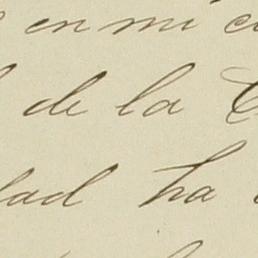 en mi
de la
dad ha